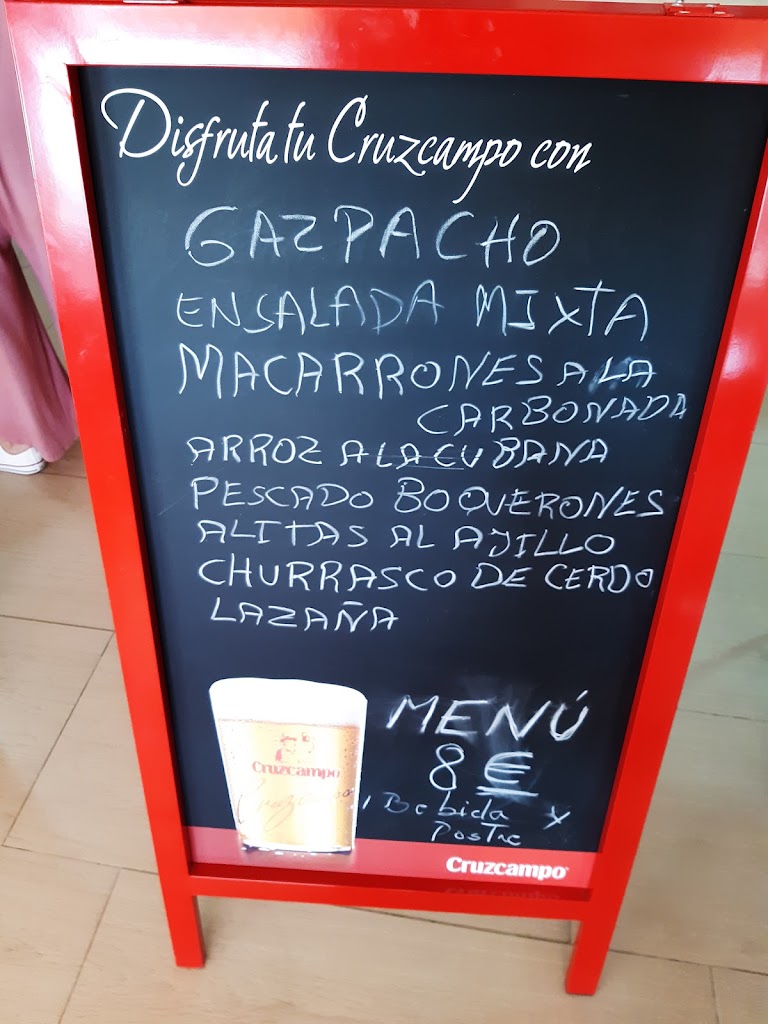 Disfruta tu Cruzcampo con
GAZPACHO
ENSALADA MIXTA
MACARRONES A LA
CARBONADA
ARROZ A LA CUBANA
PESCADO BOQUERONES
ALITAS AL AJILLO
CHURRASCO DE CERDO
LAZAÑA
MENÚ
8 €
1 Bebida y
Postre
Cruzcampo
Cruzcampo
Cruzcampo